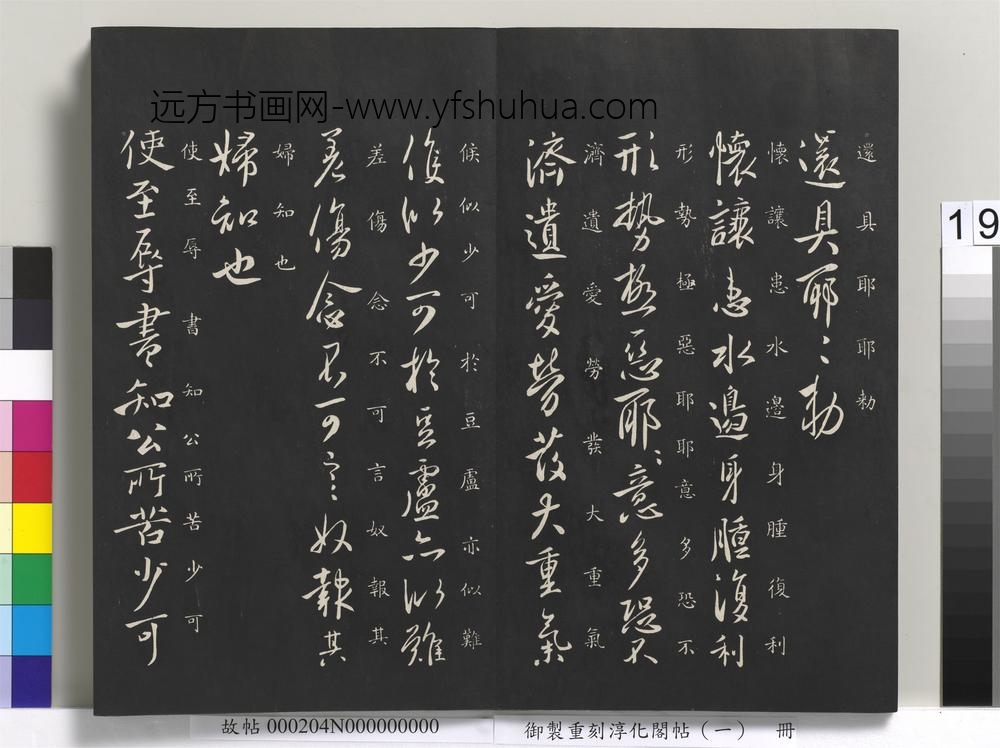 远方书画网-www.yfshuhua.com
還具耶耶勅
還具耶〻勅
懷讓患水邊身腫復利
懷讓患水邊身腫復利
形勢極惡耶耶意多恐不
形勢極惡耶〻意多恐不
濟遺愛勞發大重氣
濟遺愛勞發大重氣
候似少可於豆盧亦似難
候似少可於豆盧亦似難
差傷念不可言奴報其
差傷念不可言〻奴報其
婦知也
婦知也
使至辱書知公所苦少可
使至辱書知公所苦少可
19
故帖 000204N000000000
御製重刻淳化閣帖（一） 冊